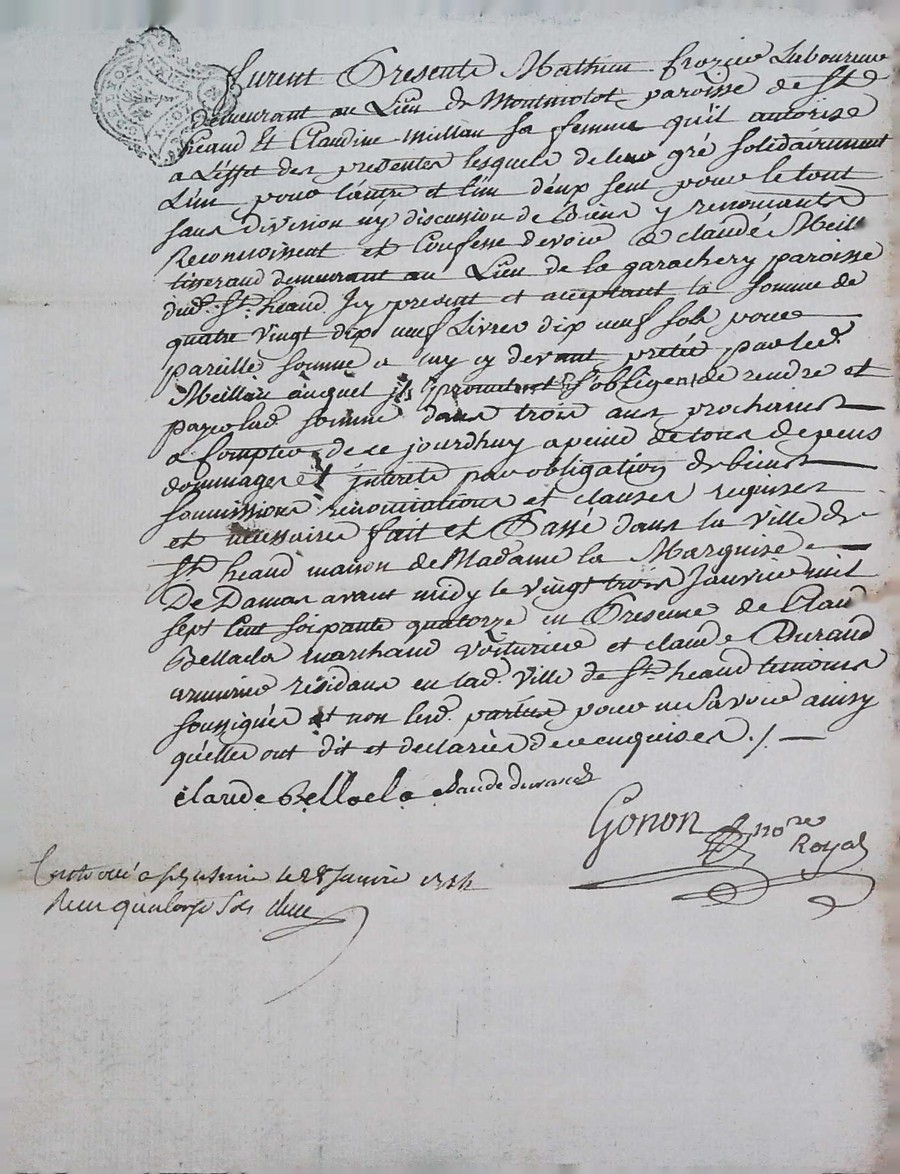 furent Presents Mathieu frozier Laboureur
demeurant au Lieu de Montmolot paroisse de St
heand Et Claudine millau sa femme qu'il autorise
a L'effet des presentes lesquels de leur gré solidairement
L'un pour l'autre et l'un deux seul pour le tout
sans division ny discussion de biens y renonçants
Reconnoissent et Confesse devoir a claude Meill
tisserand demeurant au Lieu de la garachery paroisse
dud. St. heand Icy present et acceptant la somme de
quatre vingt dix neuf Livres dix neuf sols pour
pareille somme a luy cy devant pretée par led.
Meillar auquel ils promettent s'obligent de rendre et
payer lad. somme dans trois ans prochains
a Compter de ce jourdhuy a peine de tous depens
dommages et interets par obligation de biens
soumissions renonciations et clauses requises
et necessaires fait et Passé dans la ville de
St. heand maison de Madame la Marquise
De Damas avant midy le vingt trois Janvier mil
sept Cent soixante quatorze en Presence de Clau
Bellacla marchand voiturier et claude Durand
armurier résidans en lad. ville de St. heand temoins
soussignés et non lesd. parties pour ne savoir ainsy
qu'elles ont dit et declarées de ce enquises ./.
claude Bellacla claude durand
Gonon nore
Royal
Controllé a le 28 Janvier
Recu quatorze sols